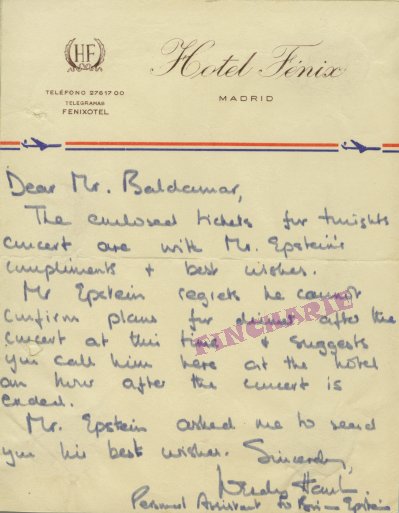 HF
Hotel Fénix
MADRID
TELÉFONO 2761700
TELEGRAMAS
FENIXOTEL
Dear Mr. Baldamar,
The enclosed tickets for tonights
concert are with Mr. Epstein's
compliments + best wishes.
Mr Epstein regrets he cannot
confirm plans for dinner after the
concert at this time + suggests
you call him here at the hotel
an hour after the concert is
ended.
Mr. Epstein asked me to send
you his best wishes. Sincerely,
Wendy
Personal Assistant to Brian Epstein
FINCHARIE